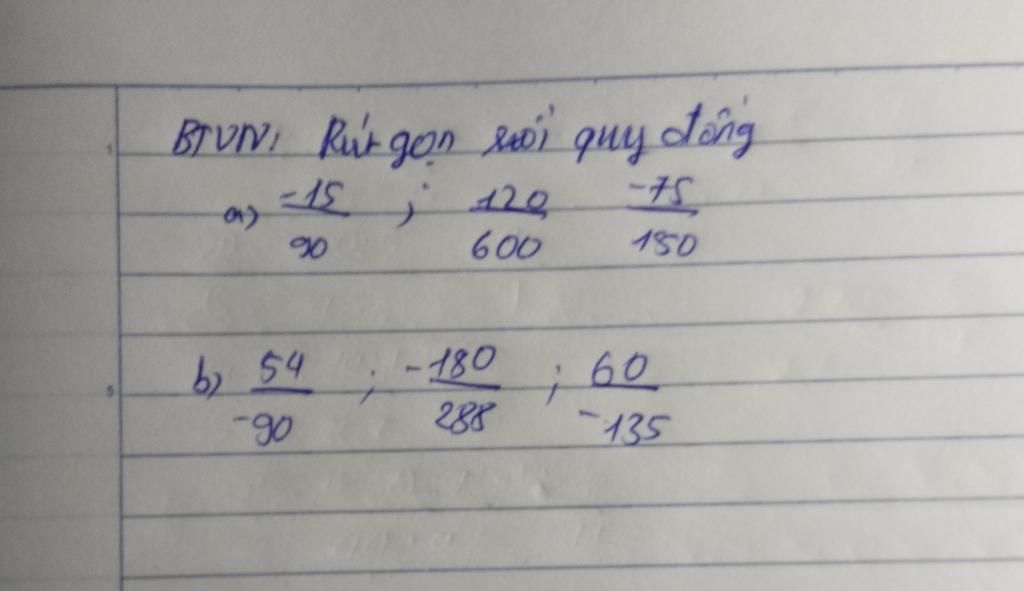 BTVN: Rút gọn rồi quy đồng
a) -15/90 ; 120/600 -75/150
b) 54/-90 ; -180/288 ; 60/-135